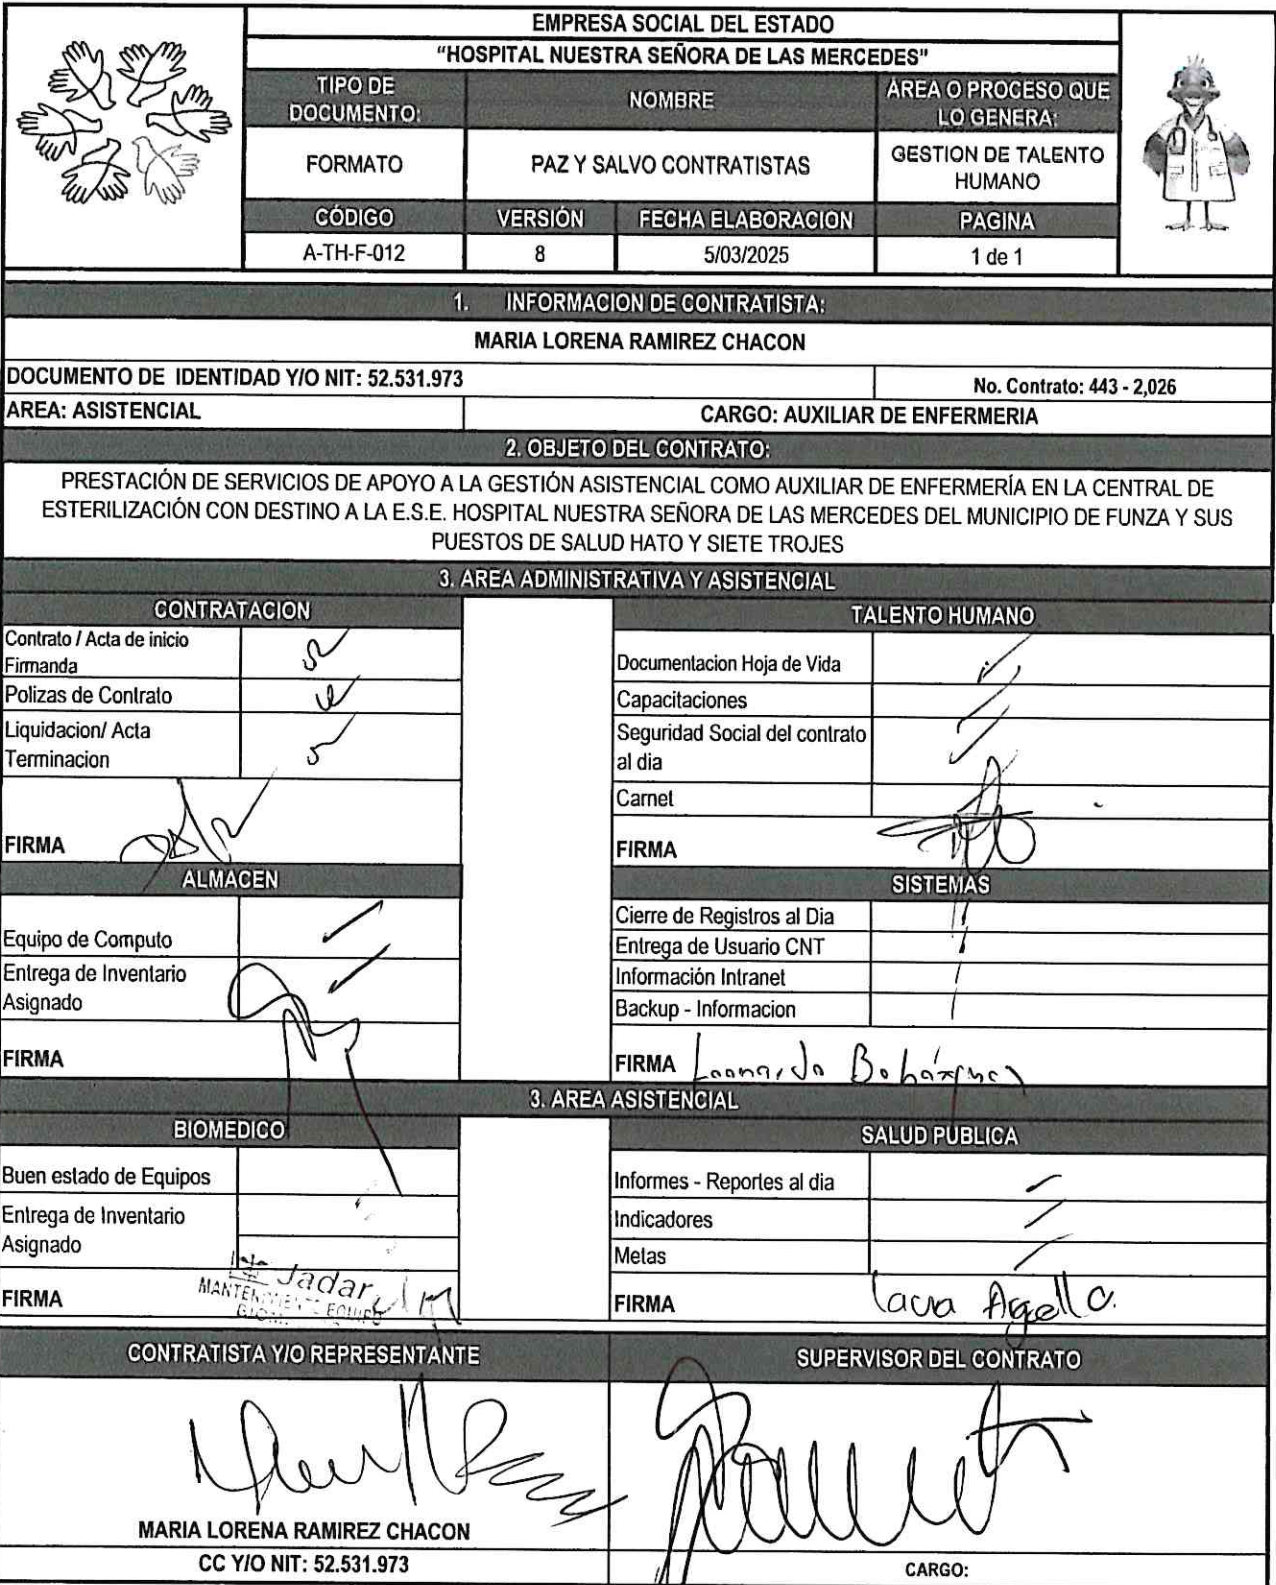 EMPRESA SOCIAL DEL ESTADO
"HOSPITAL NUESTRA SEÑORA DE LAS MERCEDES"
TIPO DE DOCUMENTO: NOMBRE ÁREA O PROCESO QUE LO GENERA:
FORMATO PAZ Y SALVO CONTRATISTAS GESTION DE TALENTO HUMANO
CÓDIGO VERSIÓN FECHA ELABORACION PAGINA
A-TH-F-012 8 5/03/2025 1 de 1
1. INFORMACION DE CONTRATISTA:
MARIA LORENA RAMIREZ CHACON
DOCUMENTO DE IDENTIDAD Y/O NIT: 52.531.973 No. Contrato: 443 - 2,026
AREA: ASISTENCIAL CARGO: AUXILIAR DE ENFERMERIA
2. OBJETO DEL CONTRATO:
PRESTACIÓN DE SERVICIOS DE APOYO A LA GESTIÓN ASISTENCIAL COMO AUXILIAR DE ENFERMERÍA EN LA CENTRAL DE
ESTERILIZACIÓN CON DESTINO A LA E.S.E. HOSPITAL NUESTRA SEÑORA DE LAS MERCEDES DEL MUNICIPIO DE FUNZA Y SUS
PUESTOS DE SALUD HATO Y SIETE TROJES
3. AREA ADMINISTRATIVA Y ASISTENCIAL
CONTRATACION
Contrato / Acta de inicio
Firmanda
Polizas de Contrato
Liquidacion/ Acta
Terminacion
FIRMA
TALENTO HUMANO
Documentacion Hoja de Vida
Capacitaciones
Seguridad Social del contrato
al dia
Carnet
FIRMA
ALMACEN
Equipo de Computo
Entrega de Inventario
Asignado
FIRMA
SISTEMAS
Cierre de Registros al Dia
Entrega de Usuario CNT
Información Intranet
Backup - Informacion
FIRMA Leonardo Bohórquez
3. AREA ASISTENCIAL
BIOMEDICO
Buen estado de Equipos
Entrega de Inventario
Asignado
Jadar
MANTENIMIENTO EQUIPO
FIRMA
SALUD PUBLICA
Informes - Reportes al dia
Indicadores
Metas
FIRMA Laura Argello C.
CONTRATISTA Y/O REPRESENTANTE
MARIA LORENA RAMIREZ CHACON
CC Y/O NIT: 52.531.973
SUPERVISOR DEL CONTRATO
CARGO: